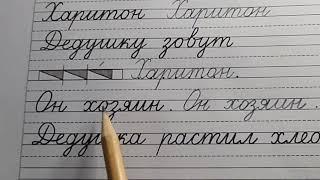 Харитон Харитон
Дедушку зовут
Харитон.
Он хозяин. Он хозяин.
Дедушка растил хлеб